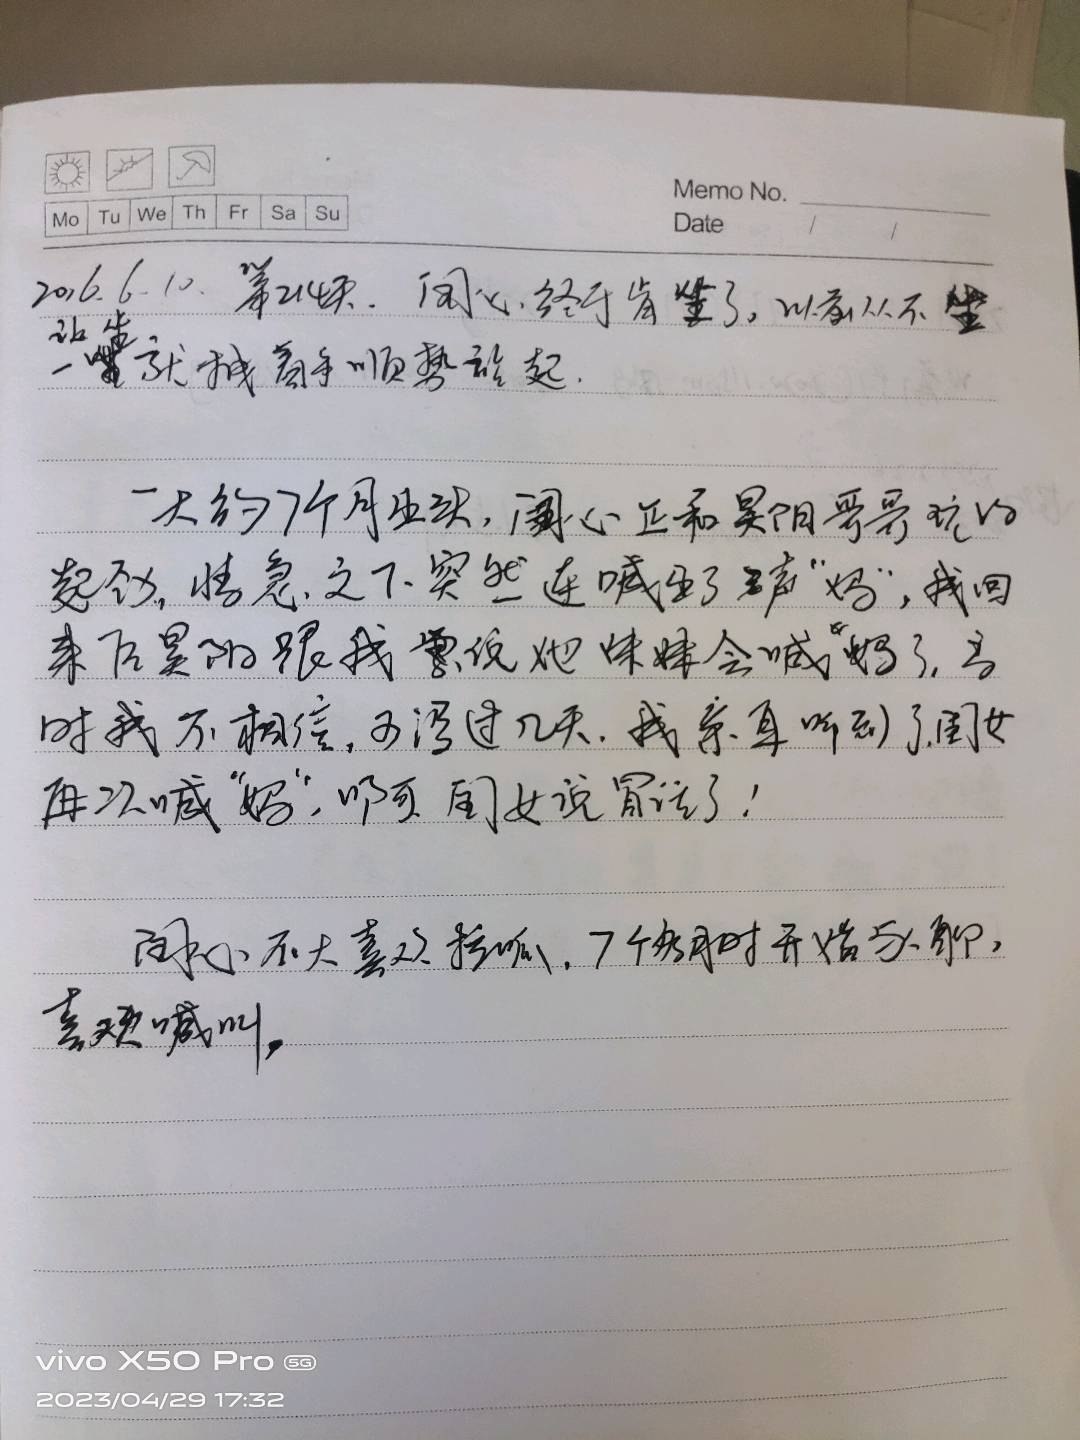 Mo Tu We Th Fr Sa Su
Memo No.
Date / /
2016.6.10. 第214天. 闰心终于肯坐了,以前从不坐
让坐
一 就 着手顺势 起.
大约7个月出头,闰心正和昊阳哥哥玩的
起劲,情急之下突然连喊出了 声“妈”,我回
来后昊阳跟我 说他妹妹会喊“妈了,当
时我不相信,又没过几天.我亲耳听到了,闺女
再次喊“妈”,哪 闺女说 话了!
闰心不大喜欢 ,7个多月时开始 人聊,
喜欢喊叫,
vivo X50 Pro 5G
2023/04/29 17:32